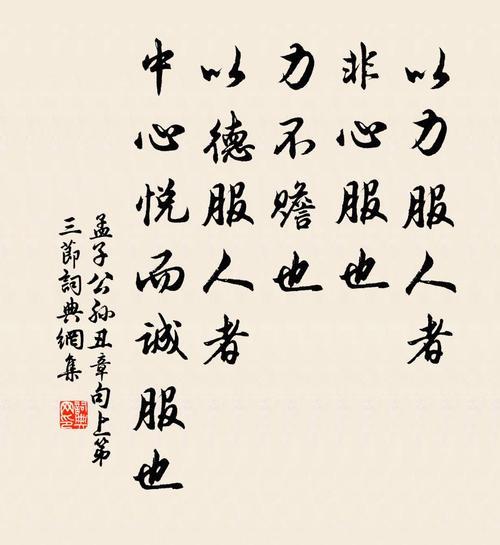 以力服人者
非心服也
力不贍也
以德服人者
中心悦而诚服也
孟子公孫丑章句上第
三節詞典網集